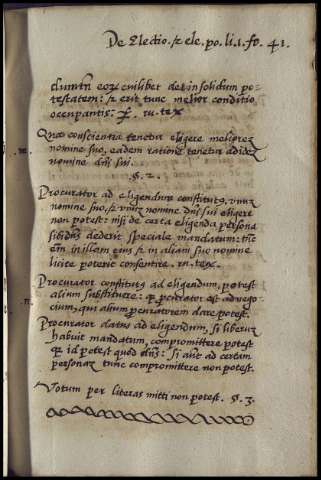 De Electio. & ele. po. li. 1. fo. 41.
cuilibet det in solidum po-
testatem: & erit tunc melior conditio
occupantis: ru. tex
Qua conscientia tenetur eligere meliorez
nomine suo, eadem ratione tenetur
nomine dñi sui.
m.
§. 2.
Procurator ad eligendum constitut9, unuz
nomine suo, & unuz nomine dñi sui eligere
non potest: nisi de certa eligenda persona
sibi dñs dederit speciale mandatum: tūc
em in illum eius & in alium suo nomine
licite poterit consentire. ru. tex.
Procurator constitutus ad eligendum, potest
alium substituere: procurator est ad nego-
cium, qui alium procuratorem dare potest.
n.
Procurator datus ad eligendum, si liberuz
habuit mandatum, compromittere potest
id potest quod dñs: si aut ad certam
personaz tunc compromittere non potest.
Votum per literas mitti non potest. §. 3.